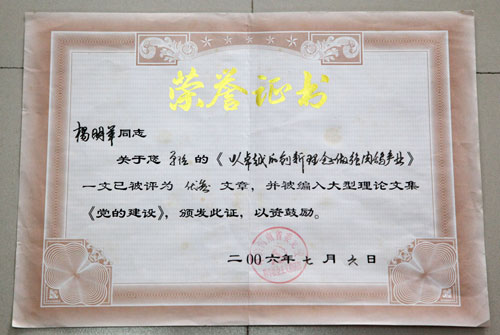 荣誉证书
杨明革同志
关于您 的《以卓越的创新理念做强肉鸽产业》
一文已被评为 优秀 文章，并被编入大型理论文集
《党的建设》，颁发此证，以资鼓励。
二00六年七月 日